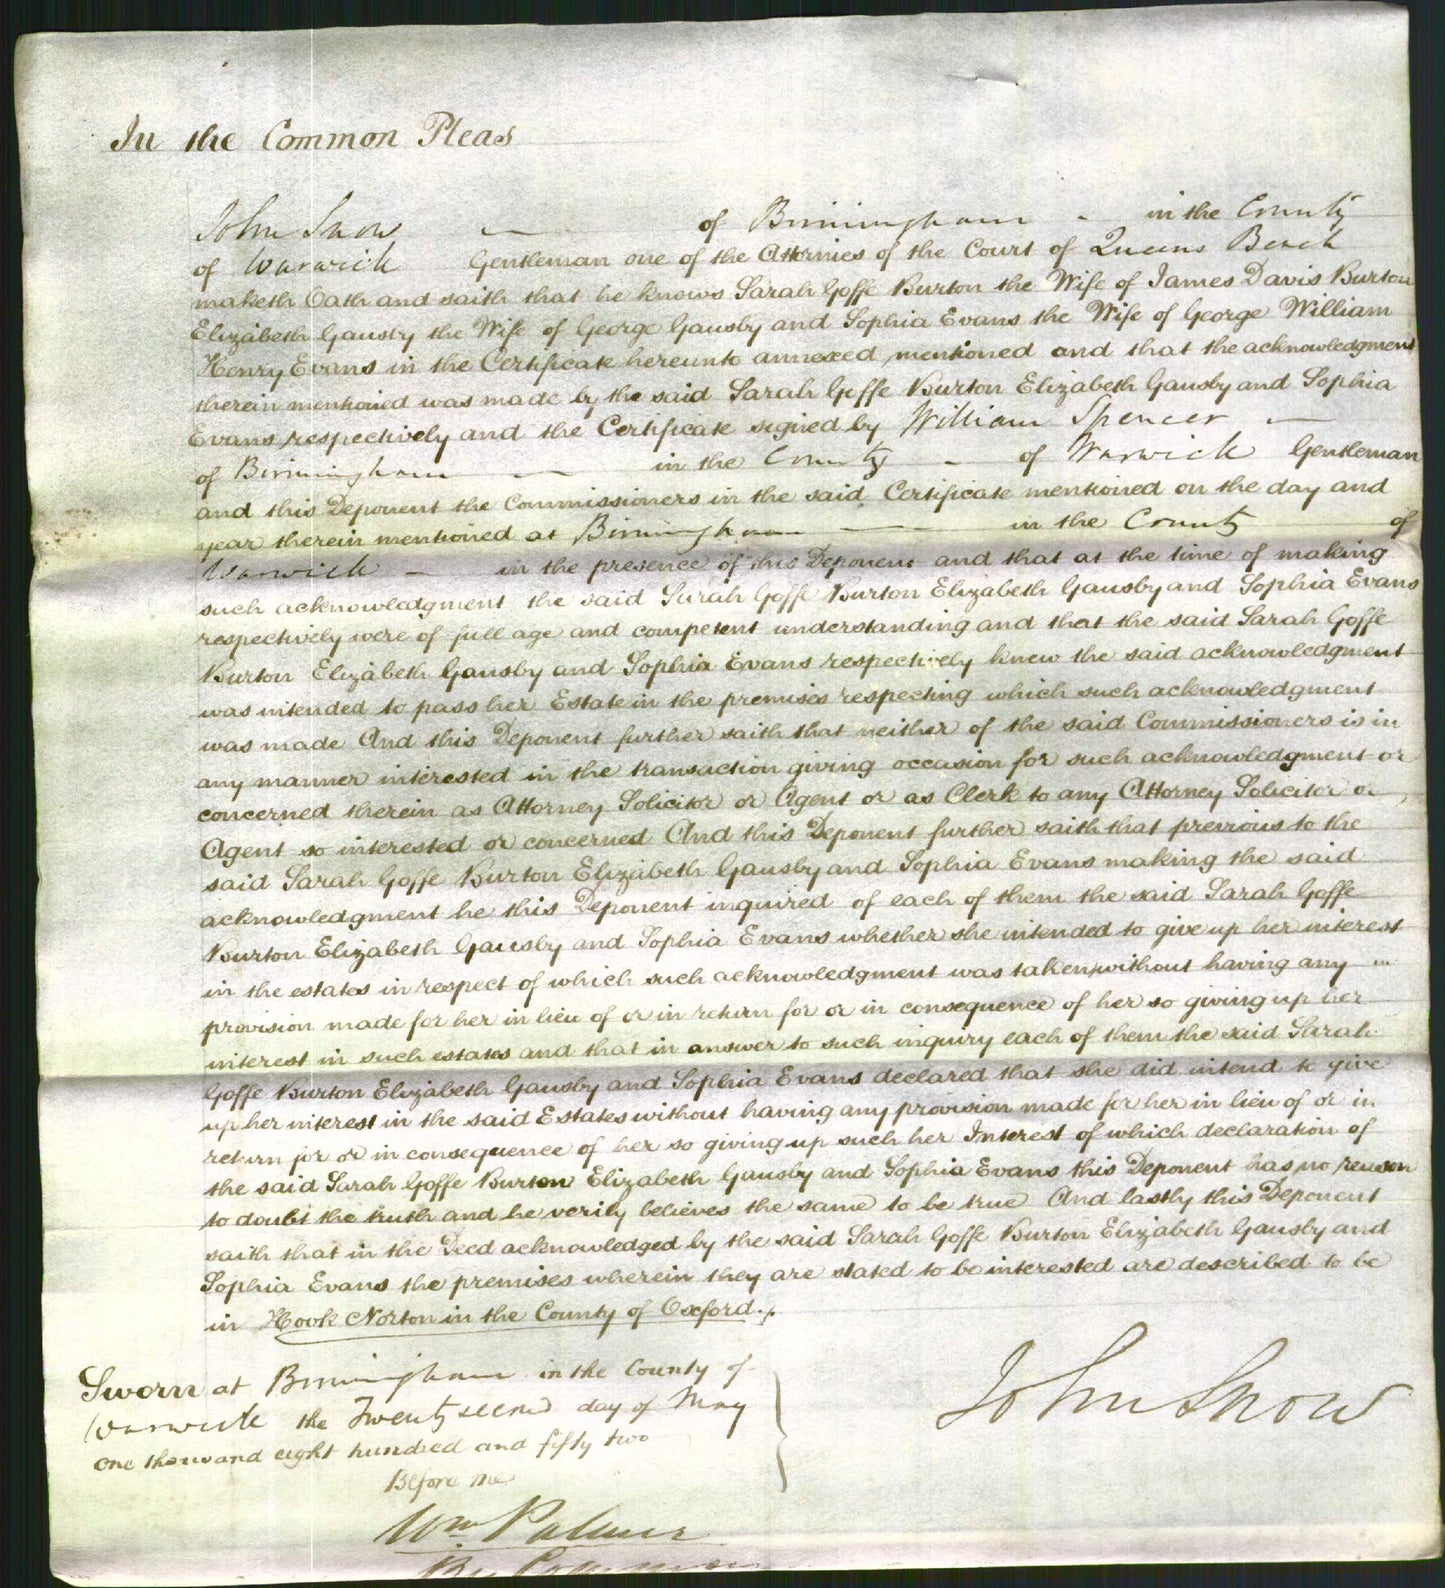 In the Common Pleas
John Snow of Birmingham in the County
of Warwick Gentleman one of the Attornies of the Court of Queens Bench
maketh Oath and saith that he knows Sarah Goffe Burton the Wife of James Davis Burton
Elizabeth Gausby the Wife of George Gausby and Sophia Evans the Wife of George William
Henry Evans in the Certificate hereunto annexed mentioned and that the acknowledgment
therein mentioned was made by the said Sarah Goffe Burton Elizabeth Gausby and Sophia
Evans respectively and the Certificate signed by William Spencer
of Birmingham in the County of Warwick Gentleman
and this Deponent the Commissioners in the said Certificate mentioned on the day and
year therein mentioned at Birmingham in the County of
Warwick in the presence of this Deponent and that at the time of making
such acknowledgment the said Sarah Goffe Burton Elizabeth Gausby and Sophia Evans
respectively were of full age and competent understanding and that the said Sarah Goffe
Burton Elizabeth Gausby and Sophia Evans respectively knew the said acknowledgment
was intended to pass her Estate in the premises respecting which such acknowledgment
was made And this Deponent further saith that neither of the said Commissioners is in
any manner interested in the transaction giving occasion for such acknowledgment or
concerned therein as Attorney Solicitor or Agent or as Clerk to any Attorney Solicitor or
Agent so interested or concerned And this Deponent further saith that previous to the
said Sarah Goffe Burton Elizabeth Gausby and Sophia Evans making the said
acknowledgment he this Deponent inquired of each of them the said Sarah Goffe
Burton Elizabeth Gausby and Sophia Evans whether she intended to give up her interest
in the estates in respect of which such acknowledgment was taken, without having any
provision made for her in lieu of or in return for or in consequence of her so giving up her
interest in such estates and that in answer to such inquiry each of them the said Sarah
Goffe Burton Elizabeth Gausby and Sophia Evans declared that she did intend to give
up her interest in the said Estates without having any provision made for her in lieu of or in
return for or in consequence of her so giving up such her Interest of which declaration of
the said Sarah Goffe Burton Elizabeth Gausby and Sophia Evans this Deponent has no reason
to doubt the truth and he verily believes the same to be true And lastly this Deponent
saith that in the Deed acknowledged by the said Sarah Goffe Burton Elizabeth Gausby and
Sophia Evans the premises wherein they are stated to be interested are described to be
in Hook Norton in the County of Oxford.
Sworn at Birmingham in the County of
Warwick the Twenty second day of May
one thousand eight hundred and fifty two
Before me
John Snow
Wm. Palmer